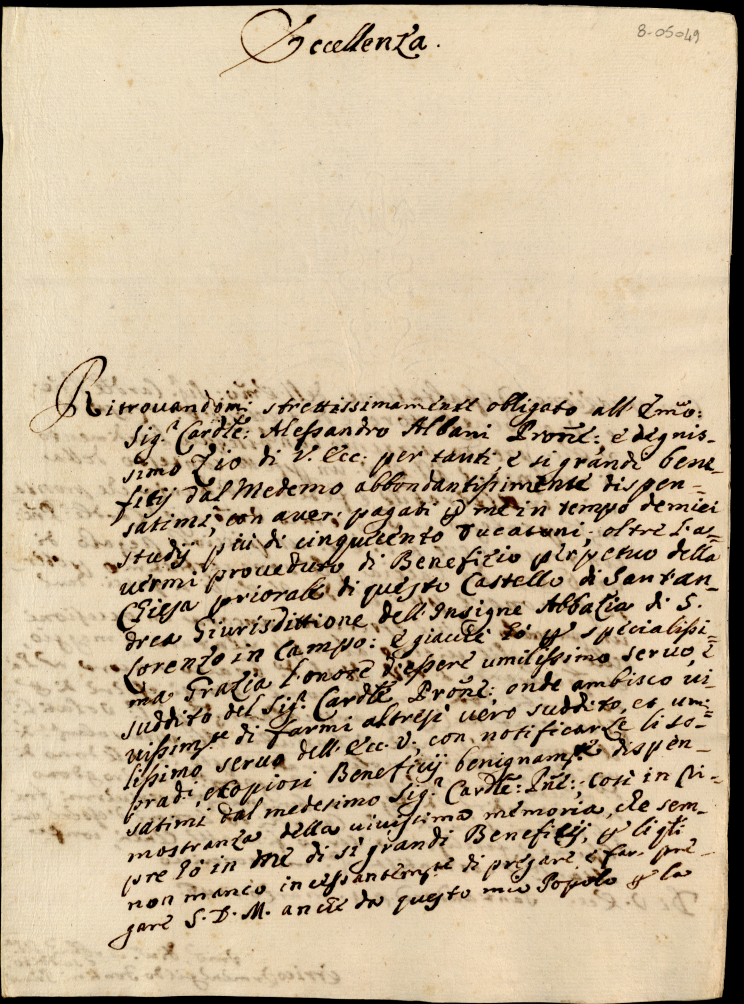 8-05049
Eccellenza.
Ritrouandomi strettissimamente obligato all' Emõ:
Sig.r Cardle: Alessandro Albani Prone: e degnis-
simo Zio di V. Ecc: per tanti, e si grandi bene-
fitij dal Medemo abbondantissimente dispen-
satimi, con auer: pagati p me in tempo de miei
studij più di cinquecento Ducatoni; oltre l'a-
uermi proueduto di Benefizio perpetuo della
Chiesa priorale di questo Castello di Santan-
drea Giurisdittione dell' Insigne Abbazia di S.
Lorenzo in Campo: E giacche hò p specialissi-
ma Grazia l'onore d'essere umilissimo seruo, e
suddito del Sig.r Cardle Prone; onde ambisco ui-
uissimte di farmi altresi uero suddito, et umi-
lissimo seruo dell' Ecc. V., con notificarle li so-
pradi, e copiosi Beneficij benignamte dispen-
satimi dal medesimo Sig.r Cardle: Pne:, cosi in di-
mostranza della uiuissima memoria, che sem-
pre hò in me di si grandi Beneficij, p li qli
non manco incessantemte di pregare e far pre-
gare S. D. M. anche da questo mio Popolo p la